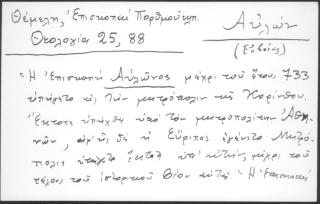 Θέμελη, Ἐπισκοπαὶ Πορθμοῦ κλπ.
Θεολογία 25, 88
Αὐλών
(Εὐβοίας)
"Ἡ Ἐπισκοπὴ Αὐλῶνος μέχρι τοῦ ἔτους 733
ὑπήγετο εἰς τὴν μητρόπολιν τῆς Κορίνθου.
Ἔκτοτε ὑπήχθη ὑπὸ τὸν μητροπολίτην Ἀθη-
νῶν, ἀφ' ἧς δὲ ἡ Εὔριπος ἐγένετο Μητρό-
πολις ὑπήγετο ὑπ' αὐτήν, μέχρι τοῦ
τέλους τοῦ ἱστορικοῦ βίου αὐτῆς. Ἡ Ἐπισκοπὴ